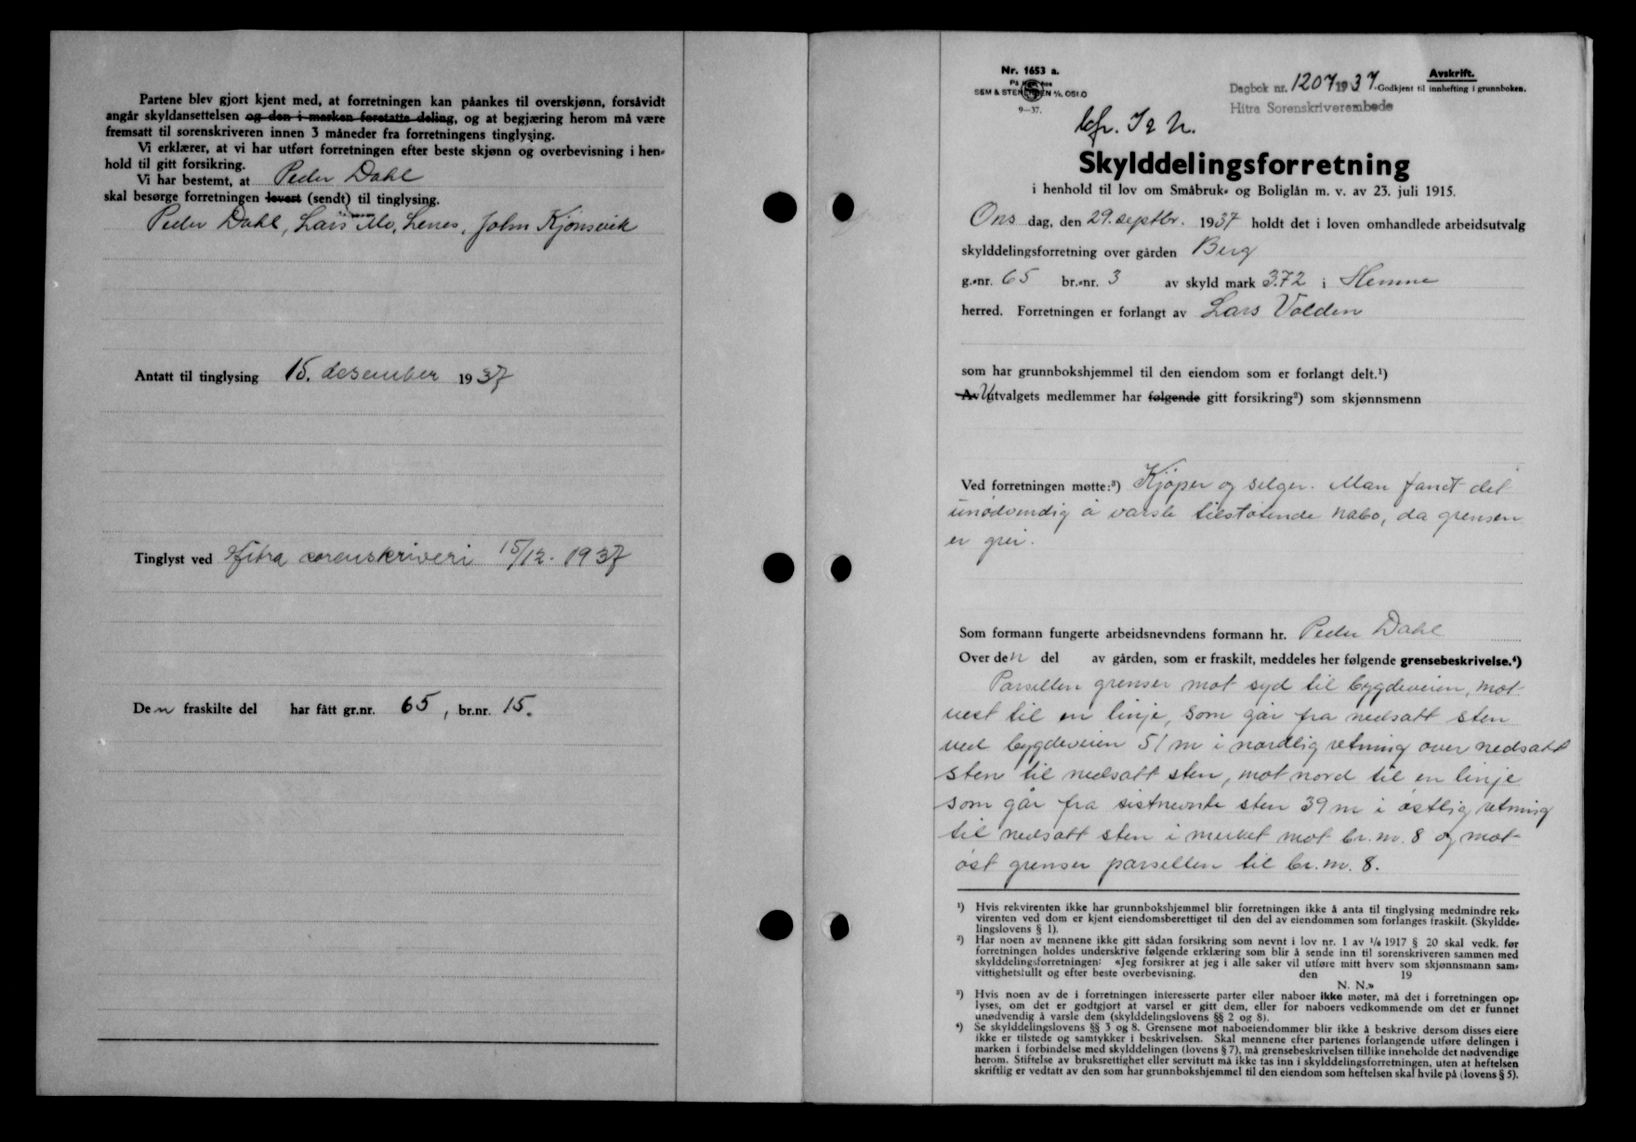 Partene blev gjort kjent med, at forretningen kan påankes til overskjønn, forsåvidt
angår skyldansettelsen og den i marken foretatte deling, og at begjæring herom må være
fremsatt til sorenskriveren innen 3 måneder fra forretningens tinglysing.
Vi erklærer, at vi har utført forretningen efter beste skjønn og overbevisning i hen-
hold til gitt forsikring.
Vi har bestemt, at Peder Dahl
skal besørge forretningen levert (sendt) til tinglysing.
Peder Dahl, Lars Mo, Lenes, John Kjønsvik
Antatt til tinglysing 15. desember 1937
Tinglyst ved Hitra sorenskriveri 15/12-1937
Den fraskilte del har fått gr.nr. 65, br.nr. 15.
Nr. 1653 a.
SEM & STENERSEN A/S, OSLO
9-37.
Avskrift.
Dagbok nr. 1207 1937. Godkjent til innhefting i grunnboken.
Hitra Sorenskriverembede
Skylddelingsforretning
i henhold til lov om Småbruk- og Boliglån m. v. av 23. juli 1915.
Ons dag, den 29. septbr. 1937 holdt det i loven omhandlede arbeidsutvalg
skylddelingsforretning over gården Berg
g.-nr. 65 br.-nr. 3 av skyld mark 3.72 i Hemne
herred. Forretningen er forlangt av Lars Volden
som har grunnbokshjemmel til den eiendom som er forlangt delt.¹)
Av Utvalgets medlemmer har følgende gitt forsikring²) som skjønnsmenn
Ved forretningen møtte:³) Kjøper og selger. Man fandt det
unødvendig å varsle tilstøtende nabo, da grensen
er grei.
Som formann fungerte arbeidsnevndens formann hr. Peder Dahl
Over den del av gården, som er fraskilt, meddeles her følgende grensebeskrivelse.⁴)
Parsellen grenser mot syd til bygdeveien, mot
vest til en linje, som går fra nedsatt sten
ved bygdeveien 51 m i nordlig retning over nedsatt
sten til nedsatt sten, mot nord til en linje
som går fra sistnevnte sten 39 m i østlig retning
til nedsatt sten i merket mot br. nr. 8 og mot
øst grenser parsellen til br. nr. 8.
¹) Hvis rekvirenten ikke har grunnbokshjemmel blir forretningen ikke å anta til tinglysing medmindre rek-
virenten ved dom er kjent eiendomsberettiget til den del av eiendommen som forlanges fraskilt. (Skyldde-
lingslovens § 1).
²) Har noen av mennene ikke gitt sådan forsikring som nevnt i lov nr. 1 av 1/6 1917 § 20 skal vedk. før
forretningen holdes underskrive følgende erklæring som blir å sende inn til sorenskriveren sammen med
skylddelingsforretningen: «Jeg forsikrer at jeg i alle saker vil utføre mitt hverv som skjønnsmann sam-
vittighetsfullt og efter beste overbevisning. den 19
N. N.»
³) Hvis noen av de i forretningen interesserte parter eller naboer ikke møter, må det i forretningen op-
lyses, om det er godtgjort at varsel er gitt dem, eller for naboers vedkommende om det er funnet
unødvendig å varsle dem (skylddelingslovens §§ 2 og 8).
⁴) Se skylddelingslovens §§ 3 og 8. Grensene mot naboeiendommer blir ikke å beskrive dersom disses eiere
ikke er tilstede og samtykker i beskrivelsen. Skal mennene efter partenes forlangende utføre delingen i
marken i forbindelse med skylddelingen (lovens § 7), må grensebeskrivelsen tillike inneholde det nødvendige
herom. Stiftelse av bruksrettighet eller servitutt må ikke tas inn i skylddelingsforretningen, uten at heftelsen
skriftlig er vedtatt av den som har grunnbokshjemmel til den eiendom som heftelsen skal hvile på (lovens § 5).